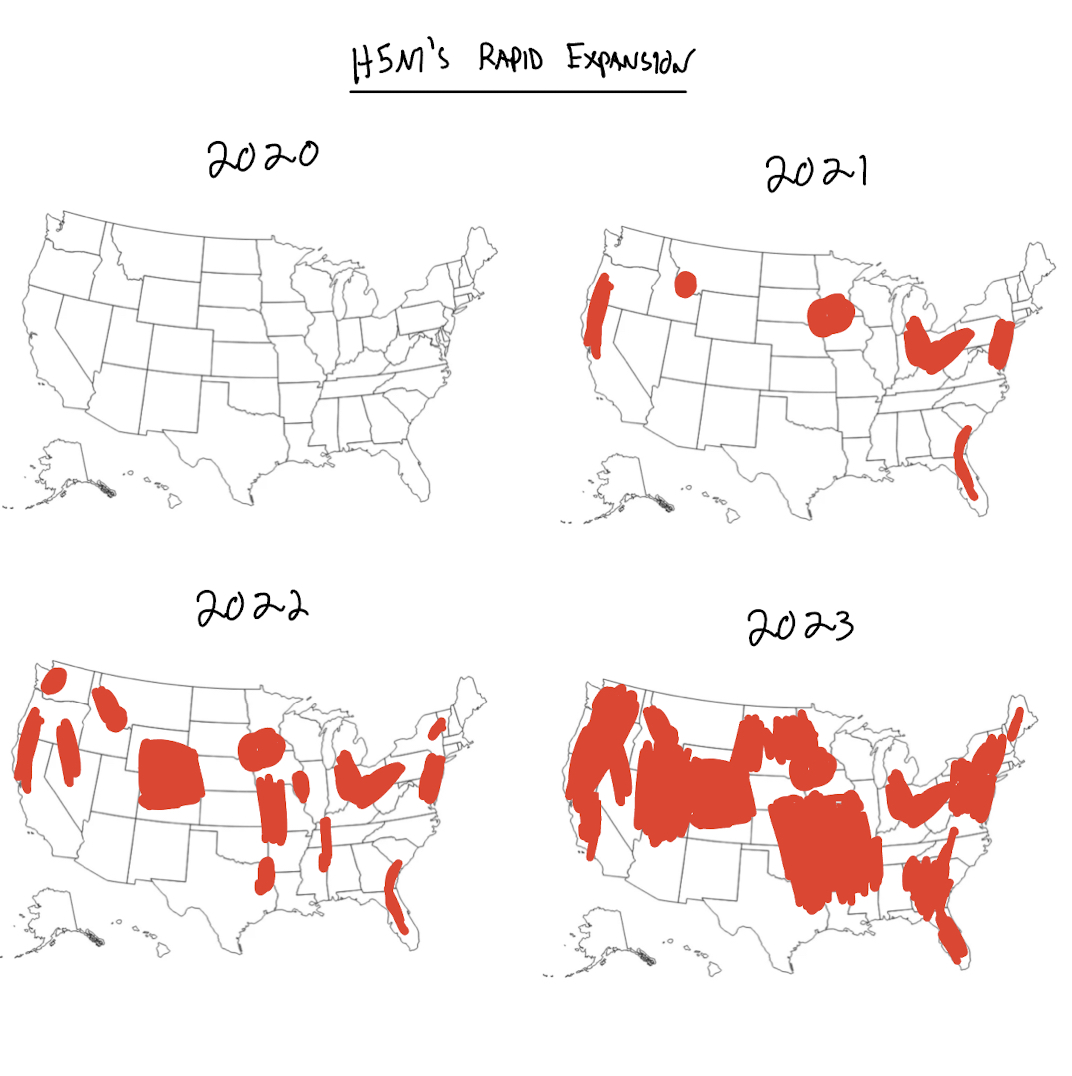 H5N1'S RAPID EXPANSION
2020
2021
2022
2023